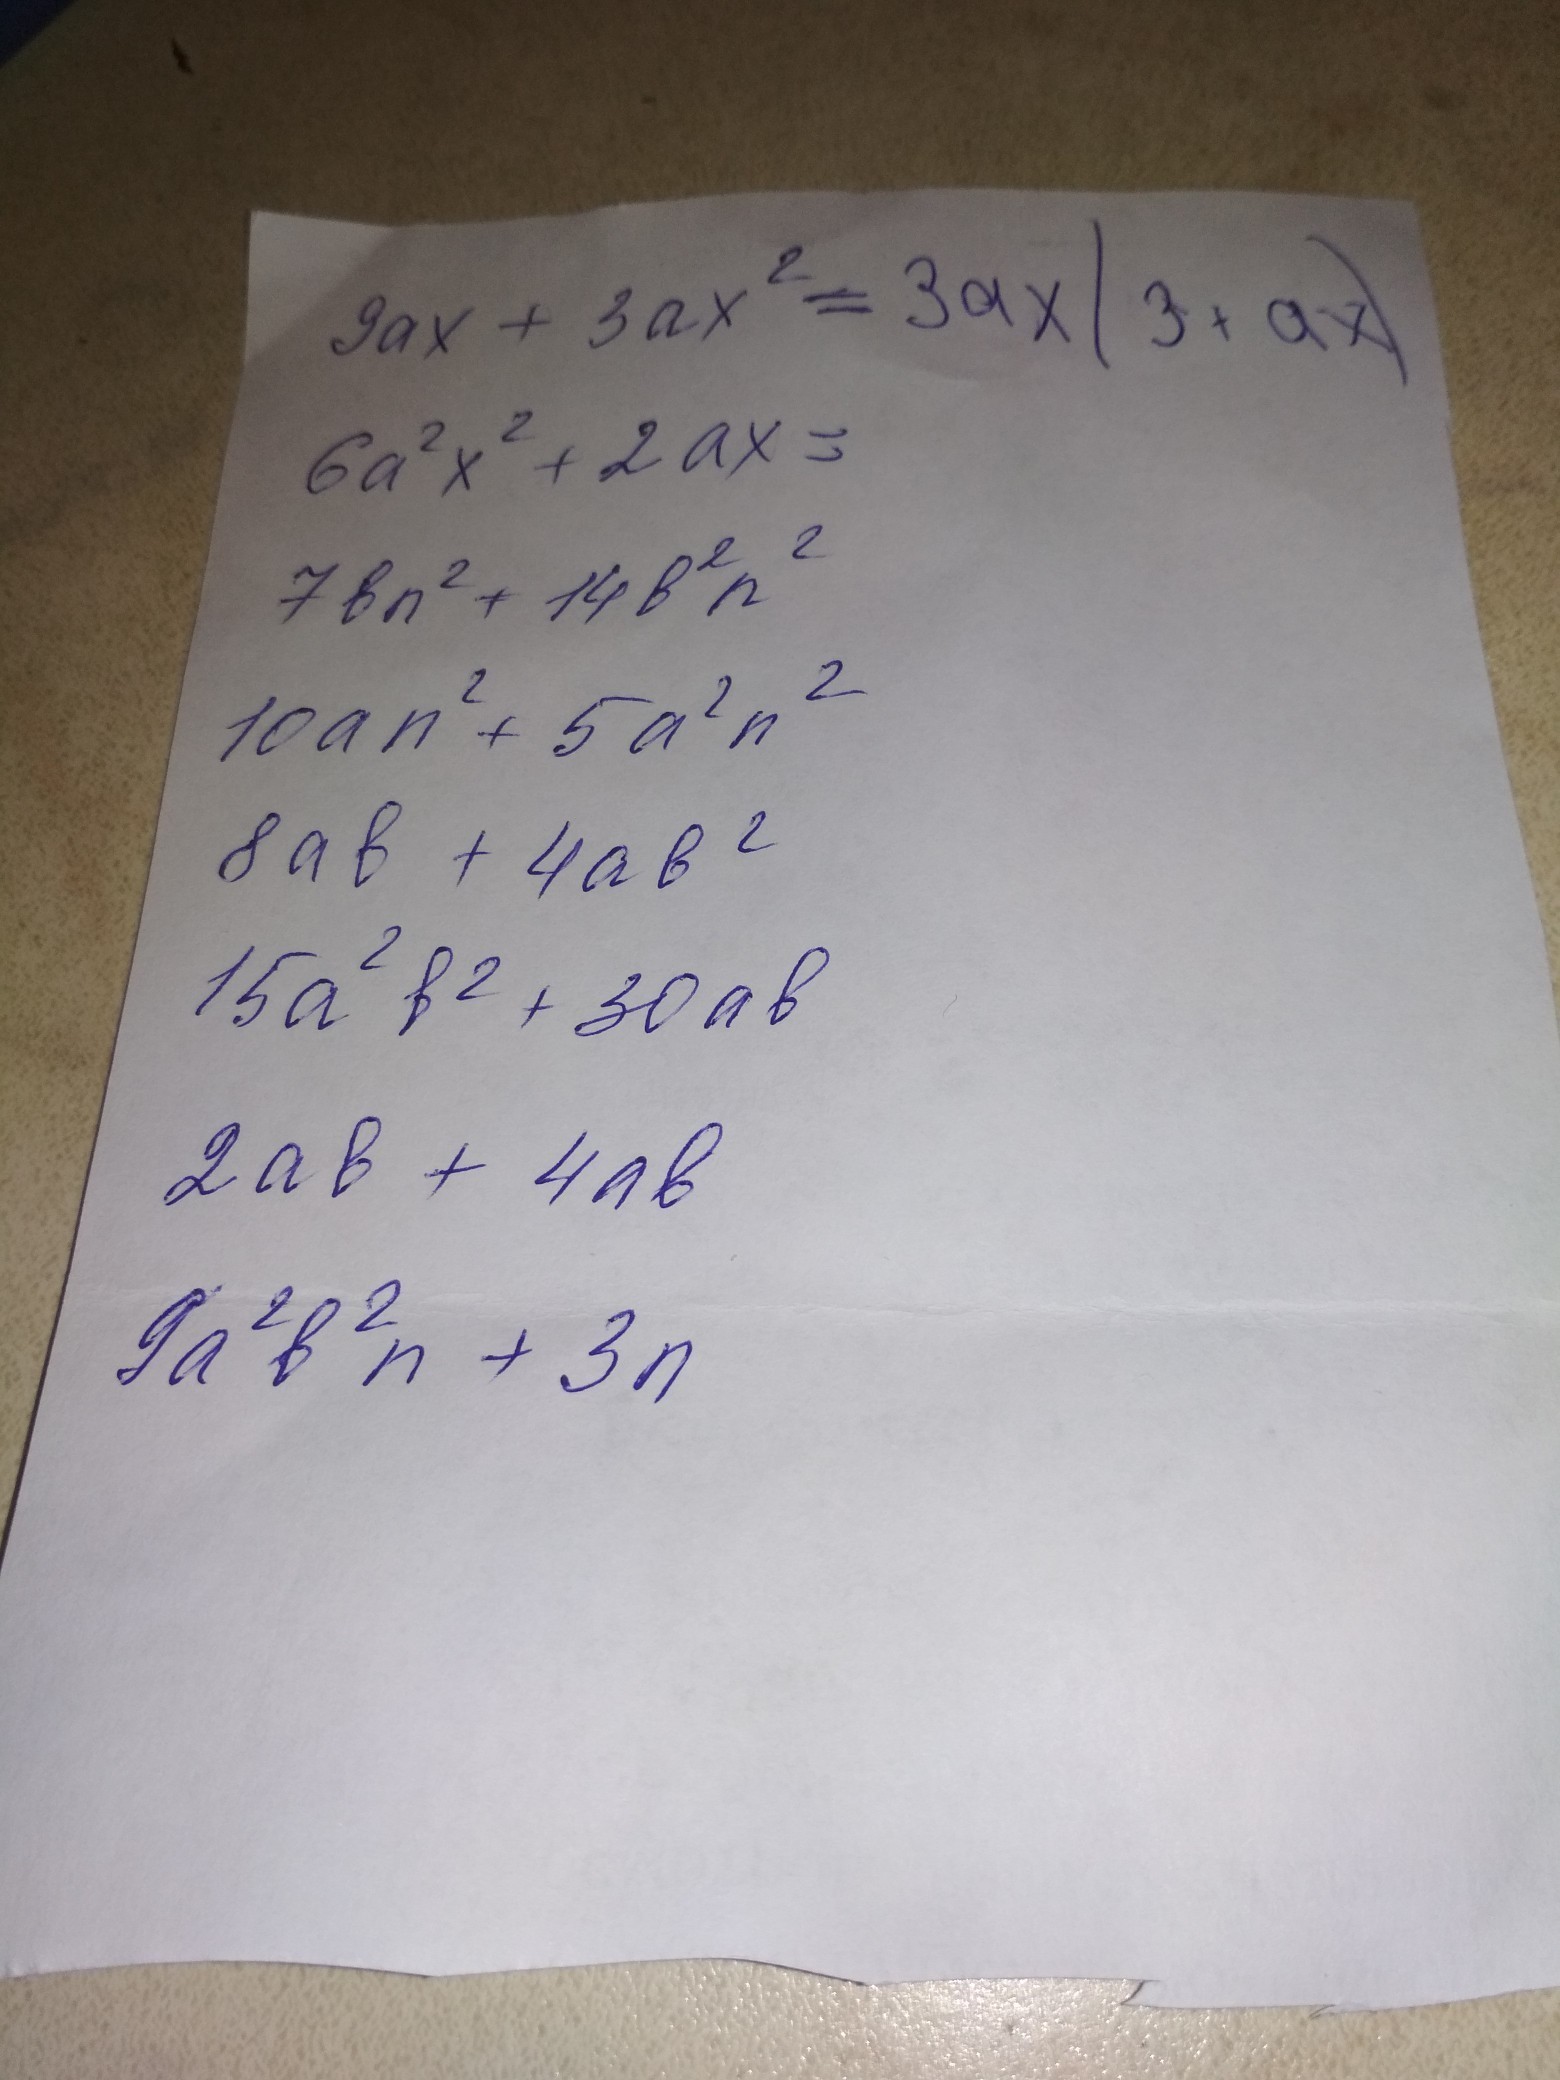 9ax + 3ax² = 3ax(3 + ax)
6a²x² + 2ax =
7вn² + 14в²n²
10an² + 5a²n²
8aв + 4aв²
15a²в² + 30aв
2aв + 4aв
9a²в²n + 3n